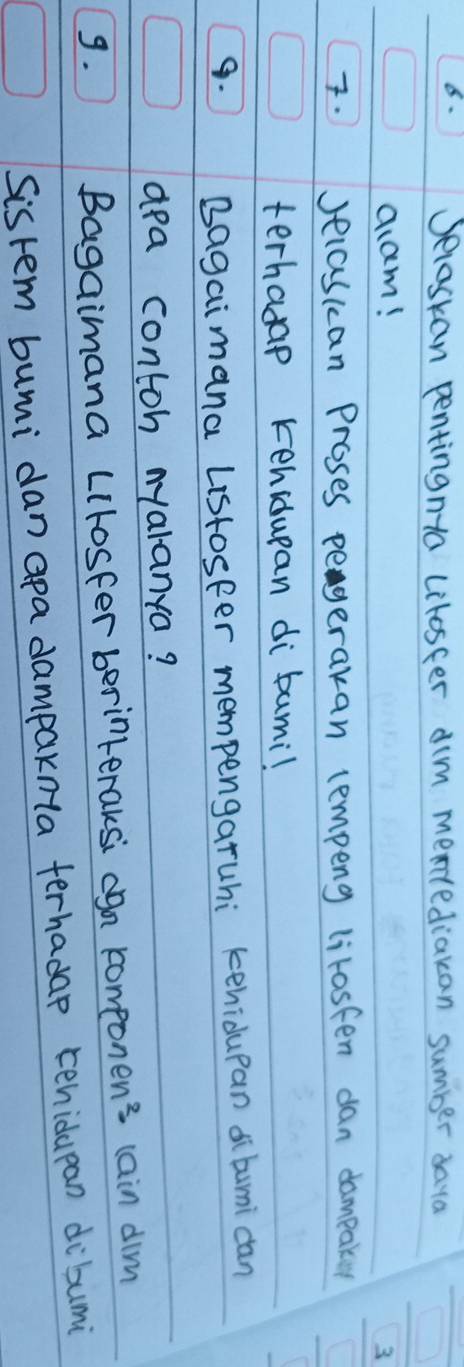 6. Jelaskan pentingnya Litosfer dlm menyediakan sumber daya
alam!
7. Jelaskan Proses pergerakan lempeng litosfer dan dampaknya
terhadap kehidupan di bumi!
8. Bagaimana Listosfer mempengaruhi kehidupan di bumi dan
apa contoh nyatanya?
9. Bagaimana Litosfer berinteraksi dgn komponen² lain dlm
Sistem bumi dan apa dampaknya terhadap kehidupan di bumi